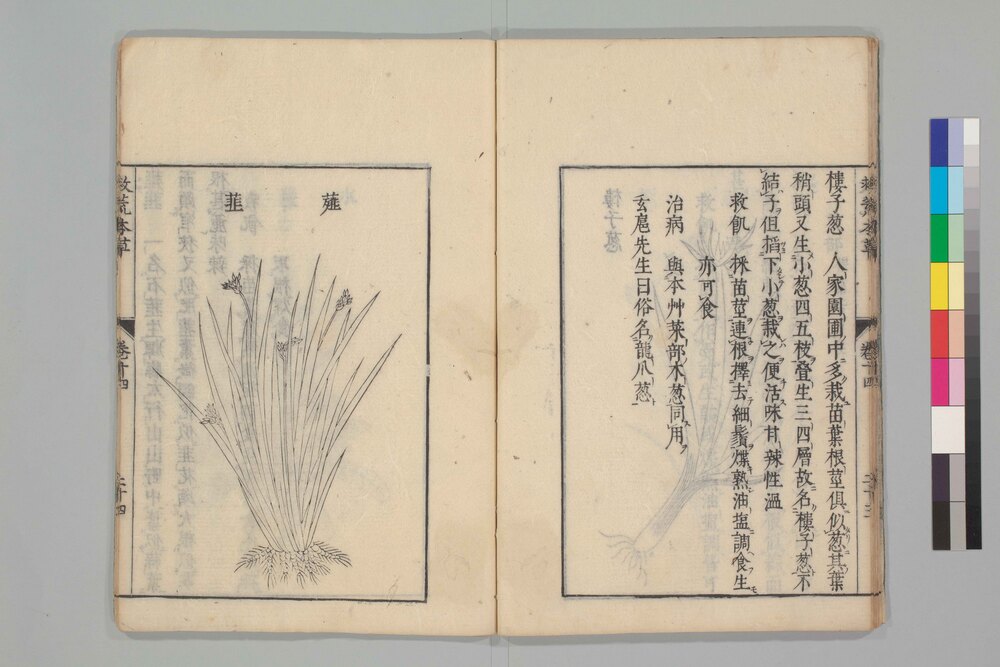 樓子葱 人家園圃中多栽苗葉根莖俱似葱其葉
稍頭又生小葱四五枝疊生三四層故名樓子葱不
結子但掐下小葱栽之便活味甘辣性温
救飢 採苗莖連根擇去細鬚煠熟油塩調食生
亦可食
治病 與本艸菜部木葱同用
玄扈先生曰俗名龍爪葱
救荒本草
卷十四
二十三
䕌
韭
救荒本草
卷十四
二十四